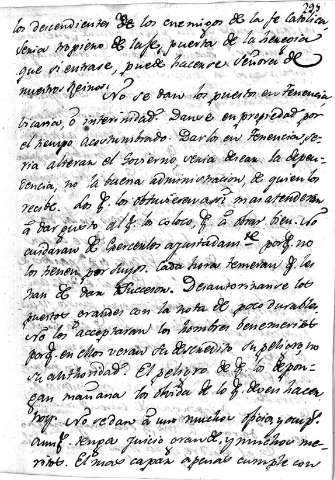 295
los descendientes de los enemigos de la fe Catolica,
seria tropieno de la fe, puerta de la heregia
que si entrase, puede hacerse Señora de
nuestros Reinos.
No se dan los puestos en tenencia
licaria o interinidad. Danse en propiedad por
el tiempo acostumbrado. Darlos en tenencia, se-
ria alterar el Govierno, seria sacar la depen-
dencia, no la buena administracion, de quien los
recibe. los q. los obtuvieran asi mas atendieran
a dar gusto al q. los coloco, q. a obrar bien. No
cuidaran de exercerlos ajustadam.te porq. no
los tienen por suyos. Cada hora temeran q. les
han de dar succesor. Desautorisanse los
puestos grandes con la nota de poco durables.
No los acceptaran los hombres benemeritos
porq. en ellos veran su descredito su peligro, no
su authoridad. El peligro de q. lo depon-
gan mañana los olvida de lo q. deven hacer
hoy. No se dan a uno muchos oficios, y ocup.
aunq. tenga juicio grande, y muchos me-
ritos. El mas capaz apenas cumple con